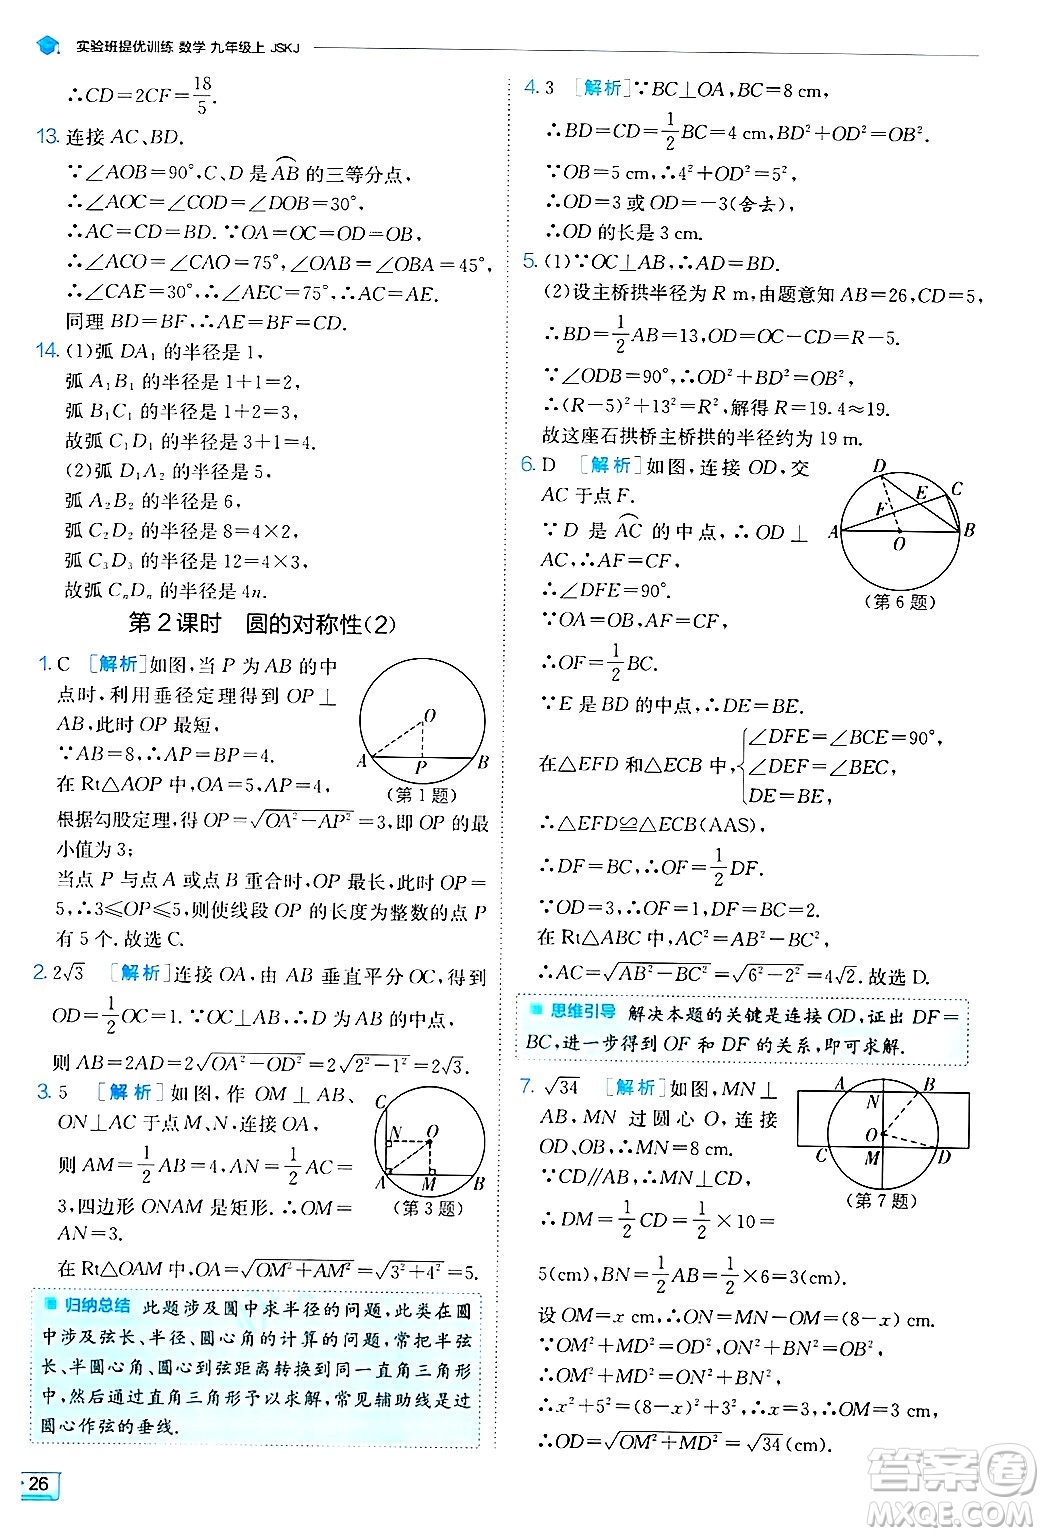 实验班提优训练 数学 九年级上 JSKJ
∴CD=2CF=18/5.
13. 连接 AC、BD.
∵∠AOB=90°,C、D 是 A͡B 的三等分点,
∴∠AOC=∠COD=∠DOB=30°,
∴AC=CD=BD.∵OA=OC=OD=OB,
∴∠ACO=∠CAO=75°,∠OAB=∠OBA=45°,
∴∠CAE=30°,∴∠AEC=75°,∴AC=AE.
同理 BD=BF,∴AE=BF=CD.
14. (1)弧 DA₁ 的半径是 1,
弧 A₁B₁ 的半径是 1+1=2,
弧 B₁C₁ 的半径是 1+2=3,
故弧 C₁D₁ 的半径是 3+1=4.
(2)弧 D₁A₂ 的半径是 5,
弧 A₂B₂ 的半径是 6,
弧 C₂D₂ 的半径是 8=4×2;
弧 C₃D₃ 的半径是 12=4×3,
故弧 CₙDₙ 的半径是 4n.
第 2 课时 圆的对称性(2)
1. C [解析]如图,当 P 为 AB 的中
点时,利用垂径定理得到 OP⊥
AB,此时 OP 最短,
∵AB=8,∴AP=BP=4.
在 Rt△AOP 中,OA=5,AP=4,
O
A P B
(第 1 题)
根据勾股定理,得 OP=√(OA²-AP²)=3,即 OP 的最
小值为 3;
当点 P 与点 A 或点 B 重合时,OP 最长,此时 OP=
5,∴3≤OP≤5,则使线段 OP 的长度为整数的点 P
有 5 个.故选 C.
2. 2√3 [解析]连接 OA,由 AB 垂直平分 OC,得到
OD=1/2OC=1.∵OC⊥AB,∴D 为 AB 的中点,
则 AB=2AD=2√(OA²-OD²)=2√(2²-1²)=2√3.
3. 5 [解析]如图,作 OM⊥AB、
ON⊥AC 于点 M、N,连接 OA,
则 AM=1/2 AB=4,AN=1/2 AC=
3,四边形 ONAM 是矩形.∴OM=
AN=3.
C
N O
A M B
(第 3 题)
在 Rt△OAM 中,OA=√(OM²+AM²)=√(3²+4²)=5.
归纳总结 此题涉及圆中求半径的问题,此类在圆
中涉及弦长、半径、圆心角的计算的问题,常把半弦
长、半圆心角、圆心到弦距离转换到同一直角三角形
中,然后通过直角三角形予以求解,常见辅助线是过
圆心作弦的垂线.
26
4. 3 [解析]∵BC⊥OA,BC=8 cm,
∴BD=CD=1/2BC=4 cm,BD²+OD²=OB².
∵OB=5 cm,∴4²+OD²=5²,
∴OD=3 或 OD=-3(舍去),
∴OD 的长是 3 cm.
5. (1)∵OC⊥AB,∴AD=BD.
(2)设主桥拱半径为 R m,由题意知 AB=26,CD=5,
∴BD=1/2AB=13,OD=OC-CD=R-5.
∵∠ODB=90°,∴OD²+BD²=OB²,
∴(R-5)²+13²=R²,解得 R=19.4≈19.
故这座石拱桥主桥拱的半径约为 19 m.
6. D [解析]如图,连接 OD,交
AC 于点 F.
∵D 是 A͡C 的中点,∴OD⊥
AC,∴AF=CF.
∴∠DFE=90°.
∵OA=OB,
D
E C
F
A O B
(第 6 题)
∴OF=1/2 BC.
∵E 是 BD 的中点,∴DE=BE.
在△EFD 和△ECB 中,{∠DFE=∠BCE=90°,
∠DEF=∠BEC,
DE=BE,
∴△EFD≌△ECB(AAS),
∴DF=BC,∴OF=1/2 DF.
∵OD=3,∴OF=1,∴BC=2.
在 Rt△ABC 中,AC²=AB²-BC²,
∴AC=√(AB²-BC²)=√(6²-2²)=4√2.故选 D.
思维引导 解决本题的关键是连接 OD,证出 DF=
BC,进一步得到 OF 和 DF 的关系,即可求解.
7. √34 [解析]如图,MN⊥
AB,MN 过圆心 O,连接
OD、OB,∴MN=8 cm.
∵CD∥AB,∴MN⊥CD,
∴DM=1/2 CD=1/2×10=
A N B
O
C M D
(第 7 题)
5(cm),BN=1/2AB=1/2×6=3(cm).
设 OM=x cm,∴ON=MN-OM=(8-x) cm.
∵OM²+MD²=OD²,ON²+BN²=OB²,
∴OM²+MD²=ON²+BN²,
∴x²+5²=(8-x)²+3²,∴x=3,∴OM=3 cm,
∴OD=√(OM²+MD²)=√34(cm).
答案圈
MXQE.COM